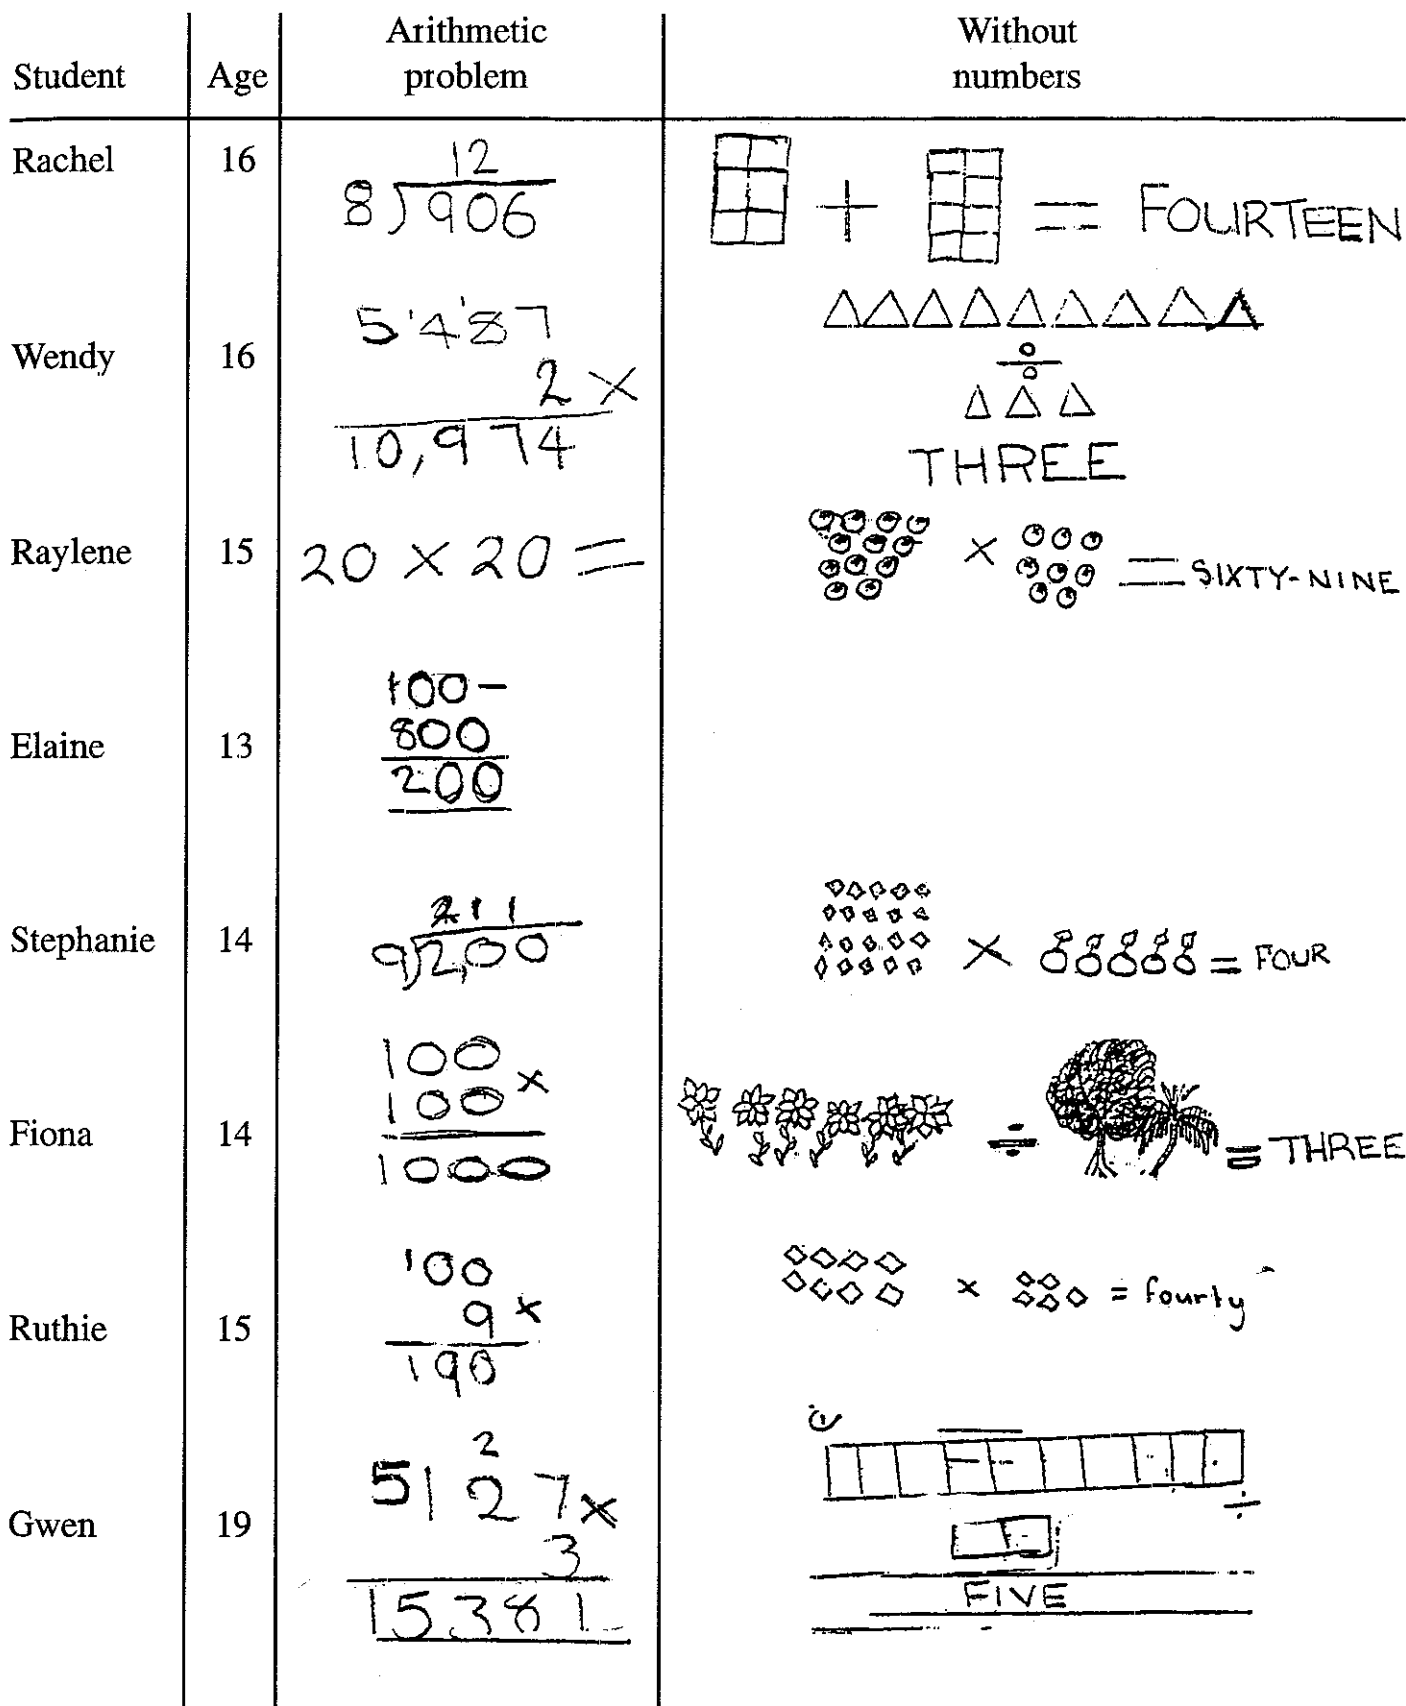 Student Age Arithmetic problem Without numbers
Rachel 16
12
8)906
+ = FOURTEEN
Wendy 16
5'4'87
2 ×
10,974
÷
THREE
Raylene 15 20 × 20 = × = SIXTY-NINE
Elaine 13
100 -
800
200
Stephanie 14
211
9)2,00
× = FOUR
Fiona 14
100
100 ×
1000
÷ = THREE
Ruthie 15
100
9 ×
190
× = fourty
Gwen 19
2
5127 ×
3
15381
÷
FIVE